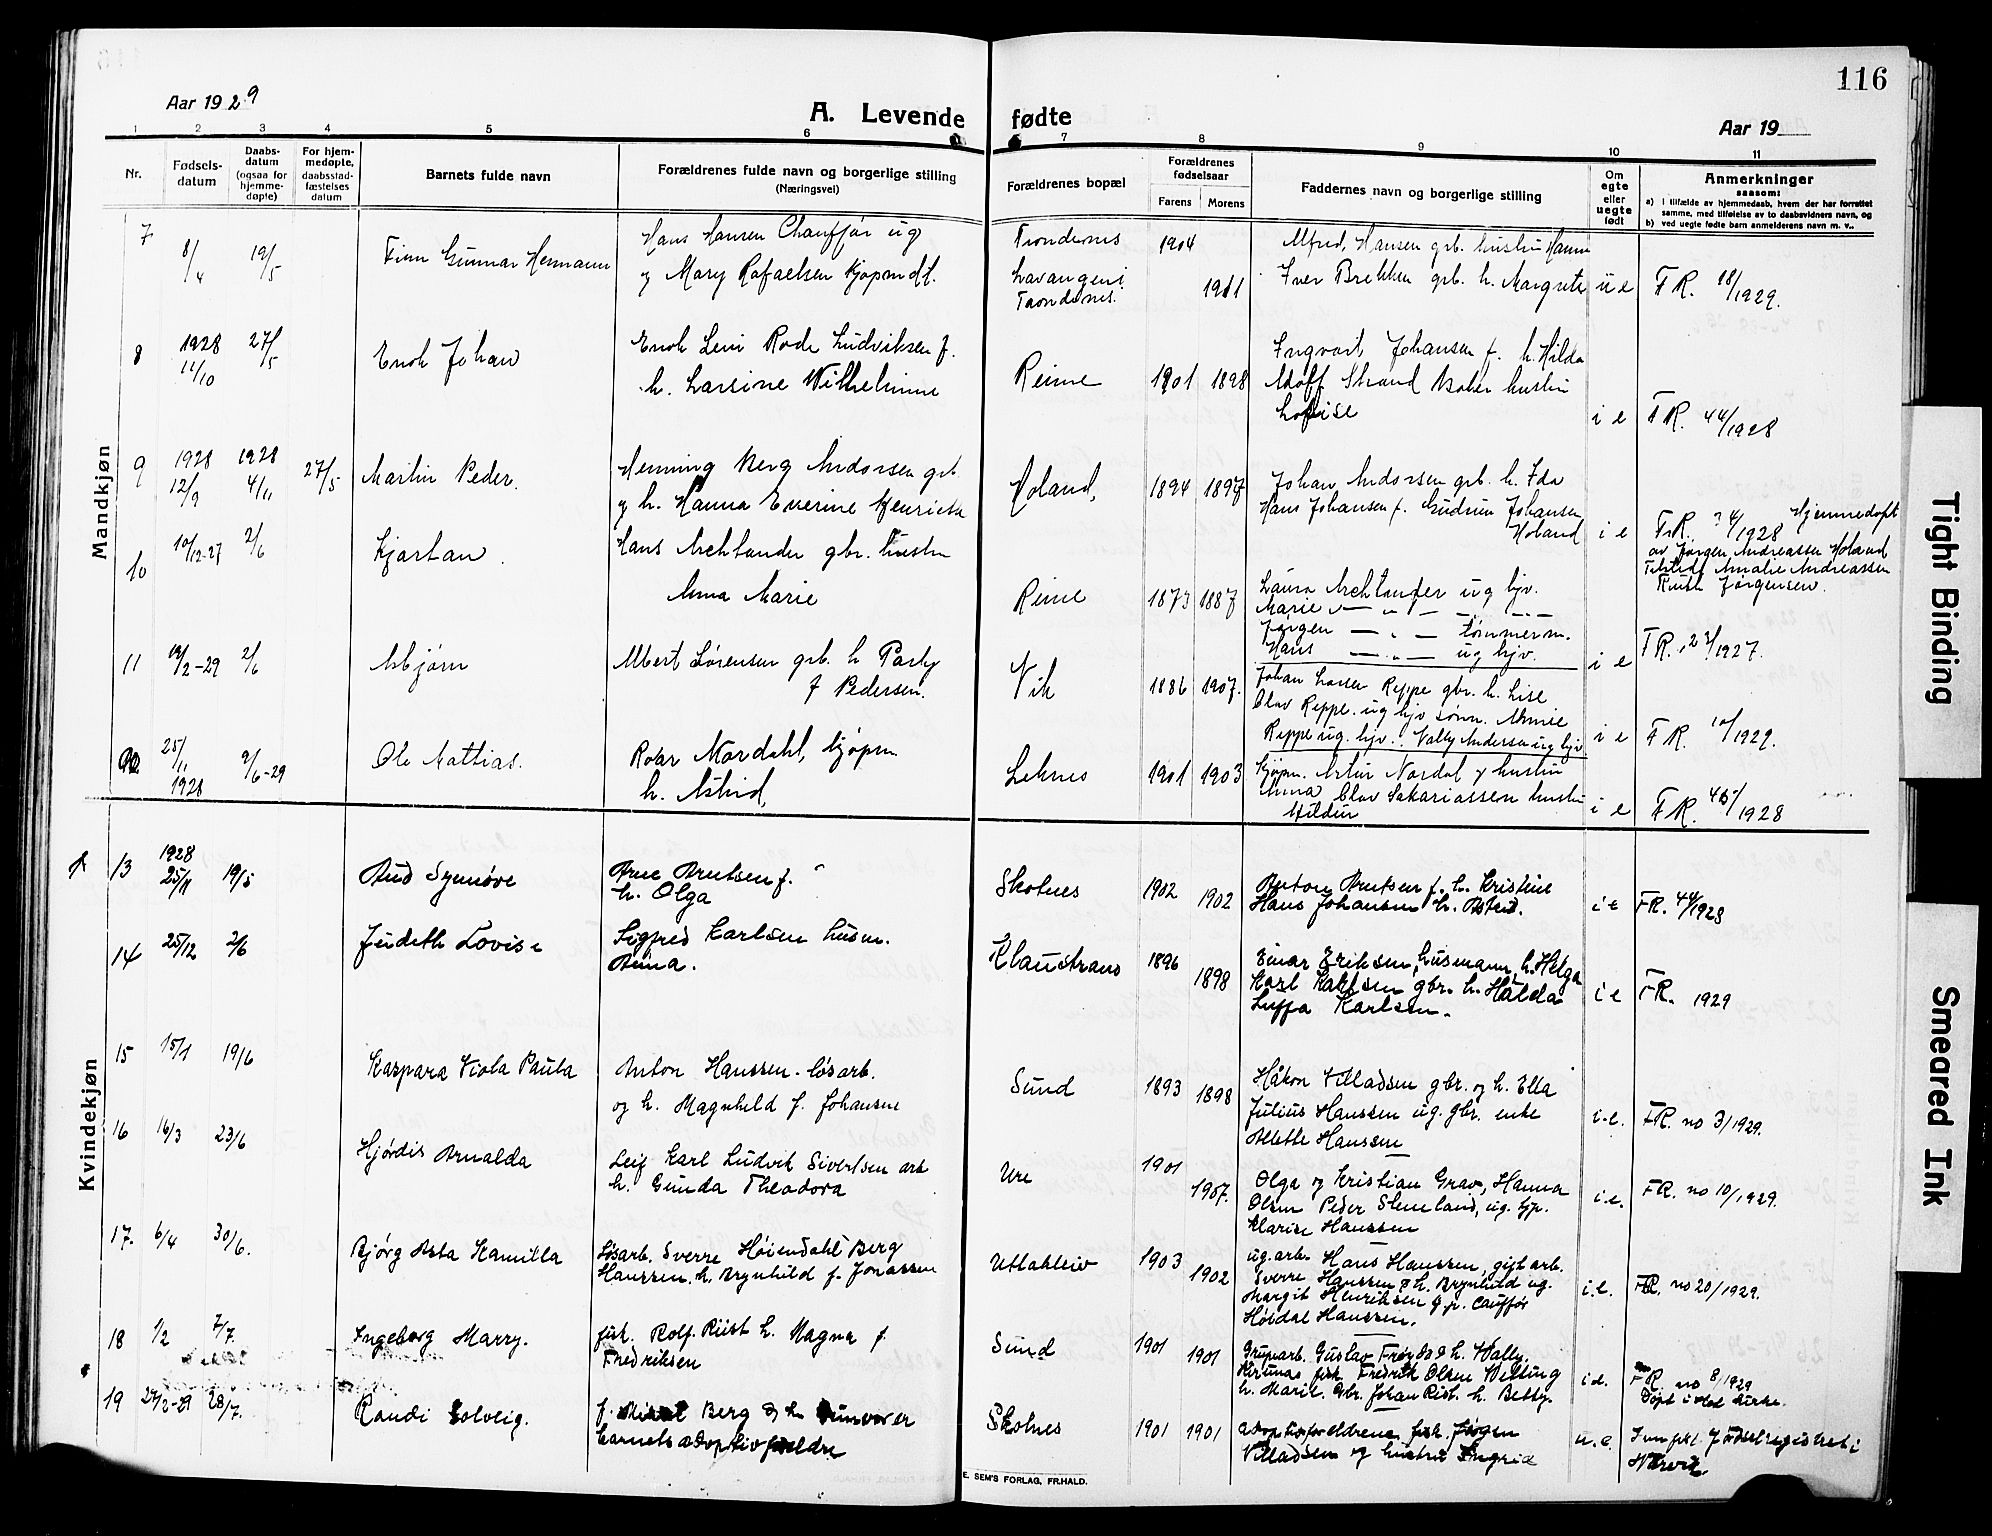 116
Aar 1929
A. Levende fødte
Aar 19
1 2 3 4 5 6 7 8 9 10 11
Nr.
Fødsels-
datum
Daabs-
datum
(ogsaa for
hjemme-
døpte)
For hjem-
medøpte,
daabsstad-
fæstelses
datum
Barnets fulde navn
Forældrenes fulde navn og borgerlige stilling
(Næringsvei)
Forældrenes bopæl
Forældrenes
fødselsaar
Farens Morens
Faddernes navn og borgerlige stilling
Om
egte
eller
uegte
født
Anmerkninger
saasom:
a) i tilfælde av hjemmedaab, hvem der har forrettet
samme, med tilføielse av to daabsvidners navn, og
b) ved uegte fødte barn anmelderens navn m. v..
Mandkjøn
7 8/4 19/5 Finn Gunnar Hermann
Hans Hansen Chauffør ug
og Mary Rafaelsen
Trondenes
Lavangen i
Trondenes.
1904 1911
Alfred Hansen grb. hustru Hanna
Iver Brekken grb. h. Margrete
u e F R. 18/1929.
8 1928 11/10 27/5 Enok Johan
Enok Levi Rode Ludviksen f.
h. Larsine Wilhelmine
Reine 1901 1898
Ingvart Johansen f. h. Hilda
Adolf Strand hustru
Lovise
i e F R. 44/1928
9 1928 12/9 1928 4/11 27/5 Martin Peder.
Henning Berg Andorsen grb
og h. Hanna Everine Henriette
Holand, 1894 1897
Johan Andorsen grb. h. Ida
Hans Johansen f. Gudrun Johansen
Holand
i e F.R. /1928 Hjemmedøpt
av Jørgen Andreassen Holand
Amalie Andreassen
Ruth Jørgensen.
10 10/12-27 2/6 Kjartan.
Hans Archtander gbr. hustru
Anna Marie
Reine 1873 1887
Laura Archtander ug hjv.
Marie
Jørgen — " — tømmerm.
Hans — " — ug hjv.
i e F R. 23/1927.
11 /2-29 2/6 Asbjørn
Albert Sørensen grb. h
f Pedersen.
Vik 1886 1907.
Johan Larsen Reppe gbr. h. Lise
Olav Reppe. ug hjv sønn.
Reppe ug. hjv. Valby Andersen ug hjv
i e F R. 10/1929.
25/11 1928 9/6-29 Ole Mattias.
Roar Nordahl, kjøpm
h. Astrid
Leknes 1901 1903
Kjøpm. Artur Nordal og hustru
Anna Olav Sakariassen hustru
Hildur
i e F R. /1928
Kvindekjøn
13 1928 25/11 19/5 Aud Synnøve
Arne Arntsen f.
h. Olga
Skotnes 1902 1902
Anton Arntsen f. h. Kristine
Hans Johansen h. Astrid.
i e FR. 44/1928
14 25/12 2/6 Judeth Lovise
Sigfred Karlsen husm.
Anna.
Klaustrans 1896 1898
Einar Eriksen, husmann, h. Helga
Karl Karlsen gbr. h. Halda
Luffa Karlsen.
i e FR. 1929
15 15/1 19/6 Kaspara Viola Paula
Anton Hanssen. løsarb.
og h. Magnhild f. Johansen
Sund 1893 1898
Håkon Villadsen gbr. og h. Ella
Julius Hanssen ug. gbr. enke
Alette Hanssen
i.e. FR. no 3/1929.
16 16/3 23/6 Hjørdis Arnalda
Leif Karl Ludvik Sivertsen arb
h. Gunda Theodora
Ure 1901 1907.
Olga og Kristian Grav, Hanna
Olsen Peder Steneland, ug. hjv.
Klarise Hanssen
i.e. FR. no 10/1929.
17. 6/4 30/6. Bjørg Asta Kamilla
Løsarb. Sverre Høiendahl Berg
Hanssen. h. Brynhild f. Jonassen
Uttakleiv 1903 1902
ug. arb. Hans Hanssen, gift arb.
Sverre Hanssen & h. Brynhild ug.
Margit Henriksen
Høidal Hanssen.
i.e. FR. no 20/1929.
18 1/2 7/7. Ingeborg Marry.
fisk. Rolf. Rist h. Magna f.
Fredriksen
Sund 1901 1901
Gruvarb. Gustav & h. Wally.
Kirunas fisk. Fredrik Olsen
h. Marie. Gbr. Johan Rist. h. Betsy.
i.e. FR. no 8/1929
Døpt i kirke.
19 27/2-29 28/7. Randi Solveig.
f. Berg & h. Gunvor er
barnets adoptivforeldre
Skotnes 1901 1901
Adoptivforeldrene, fisk. Jørgen
Villadsen og hustru Ingrid
u.e. Innført fødselregistret i
Narvik.
E. SEM'S FORLAG, FR.HALD.
Tight Binding
Smeared Ink